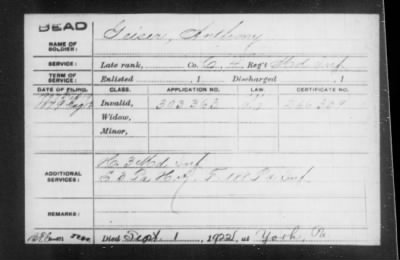 DEAD
NAME OF SOLDIER: Geiser, Anthony
SERVICE: Late rank, Co. C, 4 Reg't Md Inf
TERM OF SERVICE: Enlisted , 1 Discharged , 1
DATE OF FILING. CLASS. APPLICATION NO. LAW CERTIFICATE NO.
Invalid, 303 363
Widow,
Minor,
H. 3 Md Inf
ADDITIONAL SERVICES: Pa H. A. F. Pa Inf
REMARKS:
Died Sept 1, 1922, at York, Pa